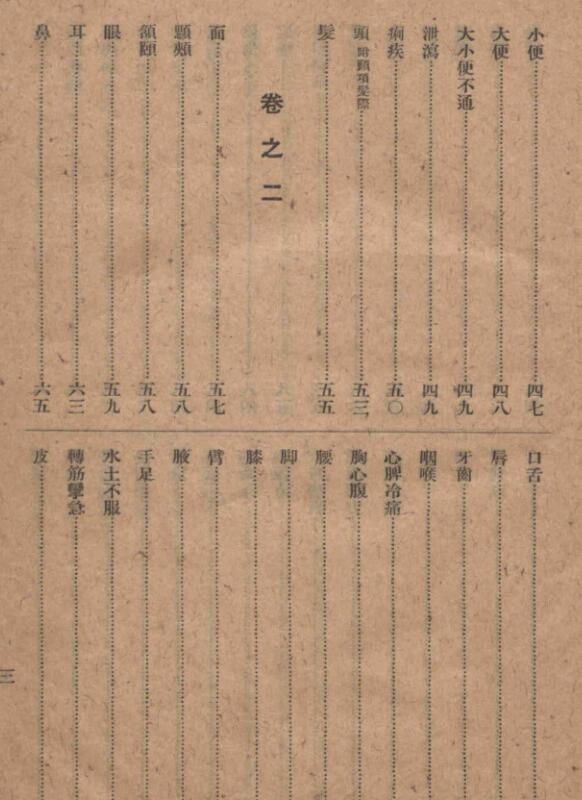 小便 四七
大便 四八
大小便不通 四九
泄瀉 四九
痢疾 五〇
頭 附頸項髮際 五三
髮 五五
卷之二
面 五七
顋頰 五八
頷頤 五八
眼 五九
耳 六三
鼻 六五
口舌
唇
牙齒
咽喉
心脾冷痛
胸心腹
腰
脚
膝
臂
腋
手足
水土不服
轉筋攣急
皮
三